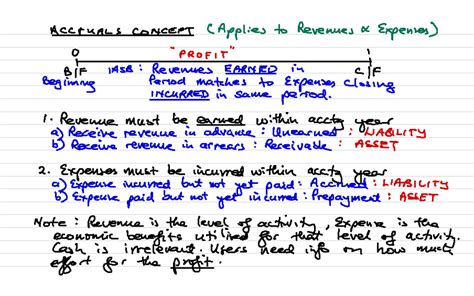 ACCRUALS CONCEPT (Applies to Revenues & Expenses)
0 "PROFIT" 1
B/F IASB : Revenues EARNED in C/F
Beginning Period matches to Expenses Closing
INCURRED in same period.
1. Revenue must be earned within acctg year
a) Receive revenue in advance : Unearned : LIABILITY
b) Receive revenue in arrears : Receivable : ASSET
2. Expenses must be incurred within acctg year
a) Expense incurred but not yet paid : Accrued : LIABILITY
b) Expense paid but not yet incurred : Prepayment : ASSET
Note : Revenue is the level of activity, Expense is the
economic benefits utilised for that level of activity.
Cash is irrelevant. Users need info on how much
effort for the profit.